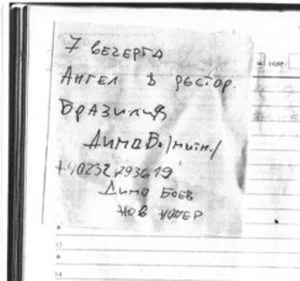 7 вечерта
Ангел в рестор.
Бразилия
Димо Б. /митн./
+40232293619
Димо Боев
нов номер
13
14